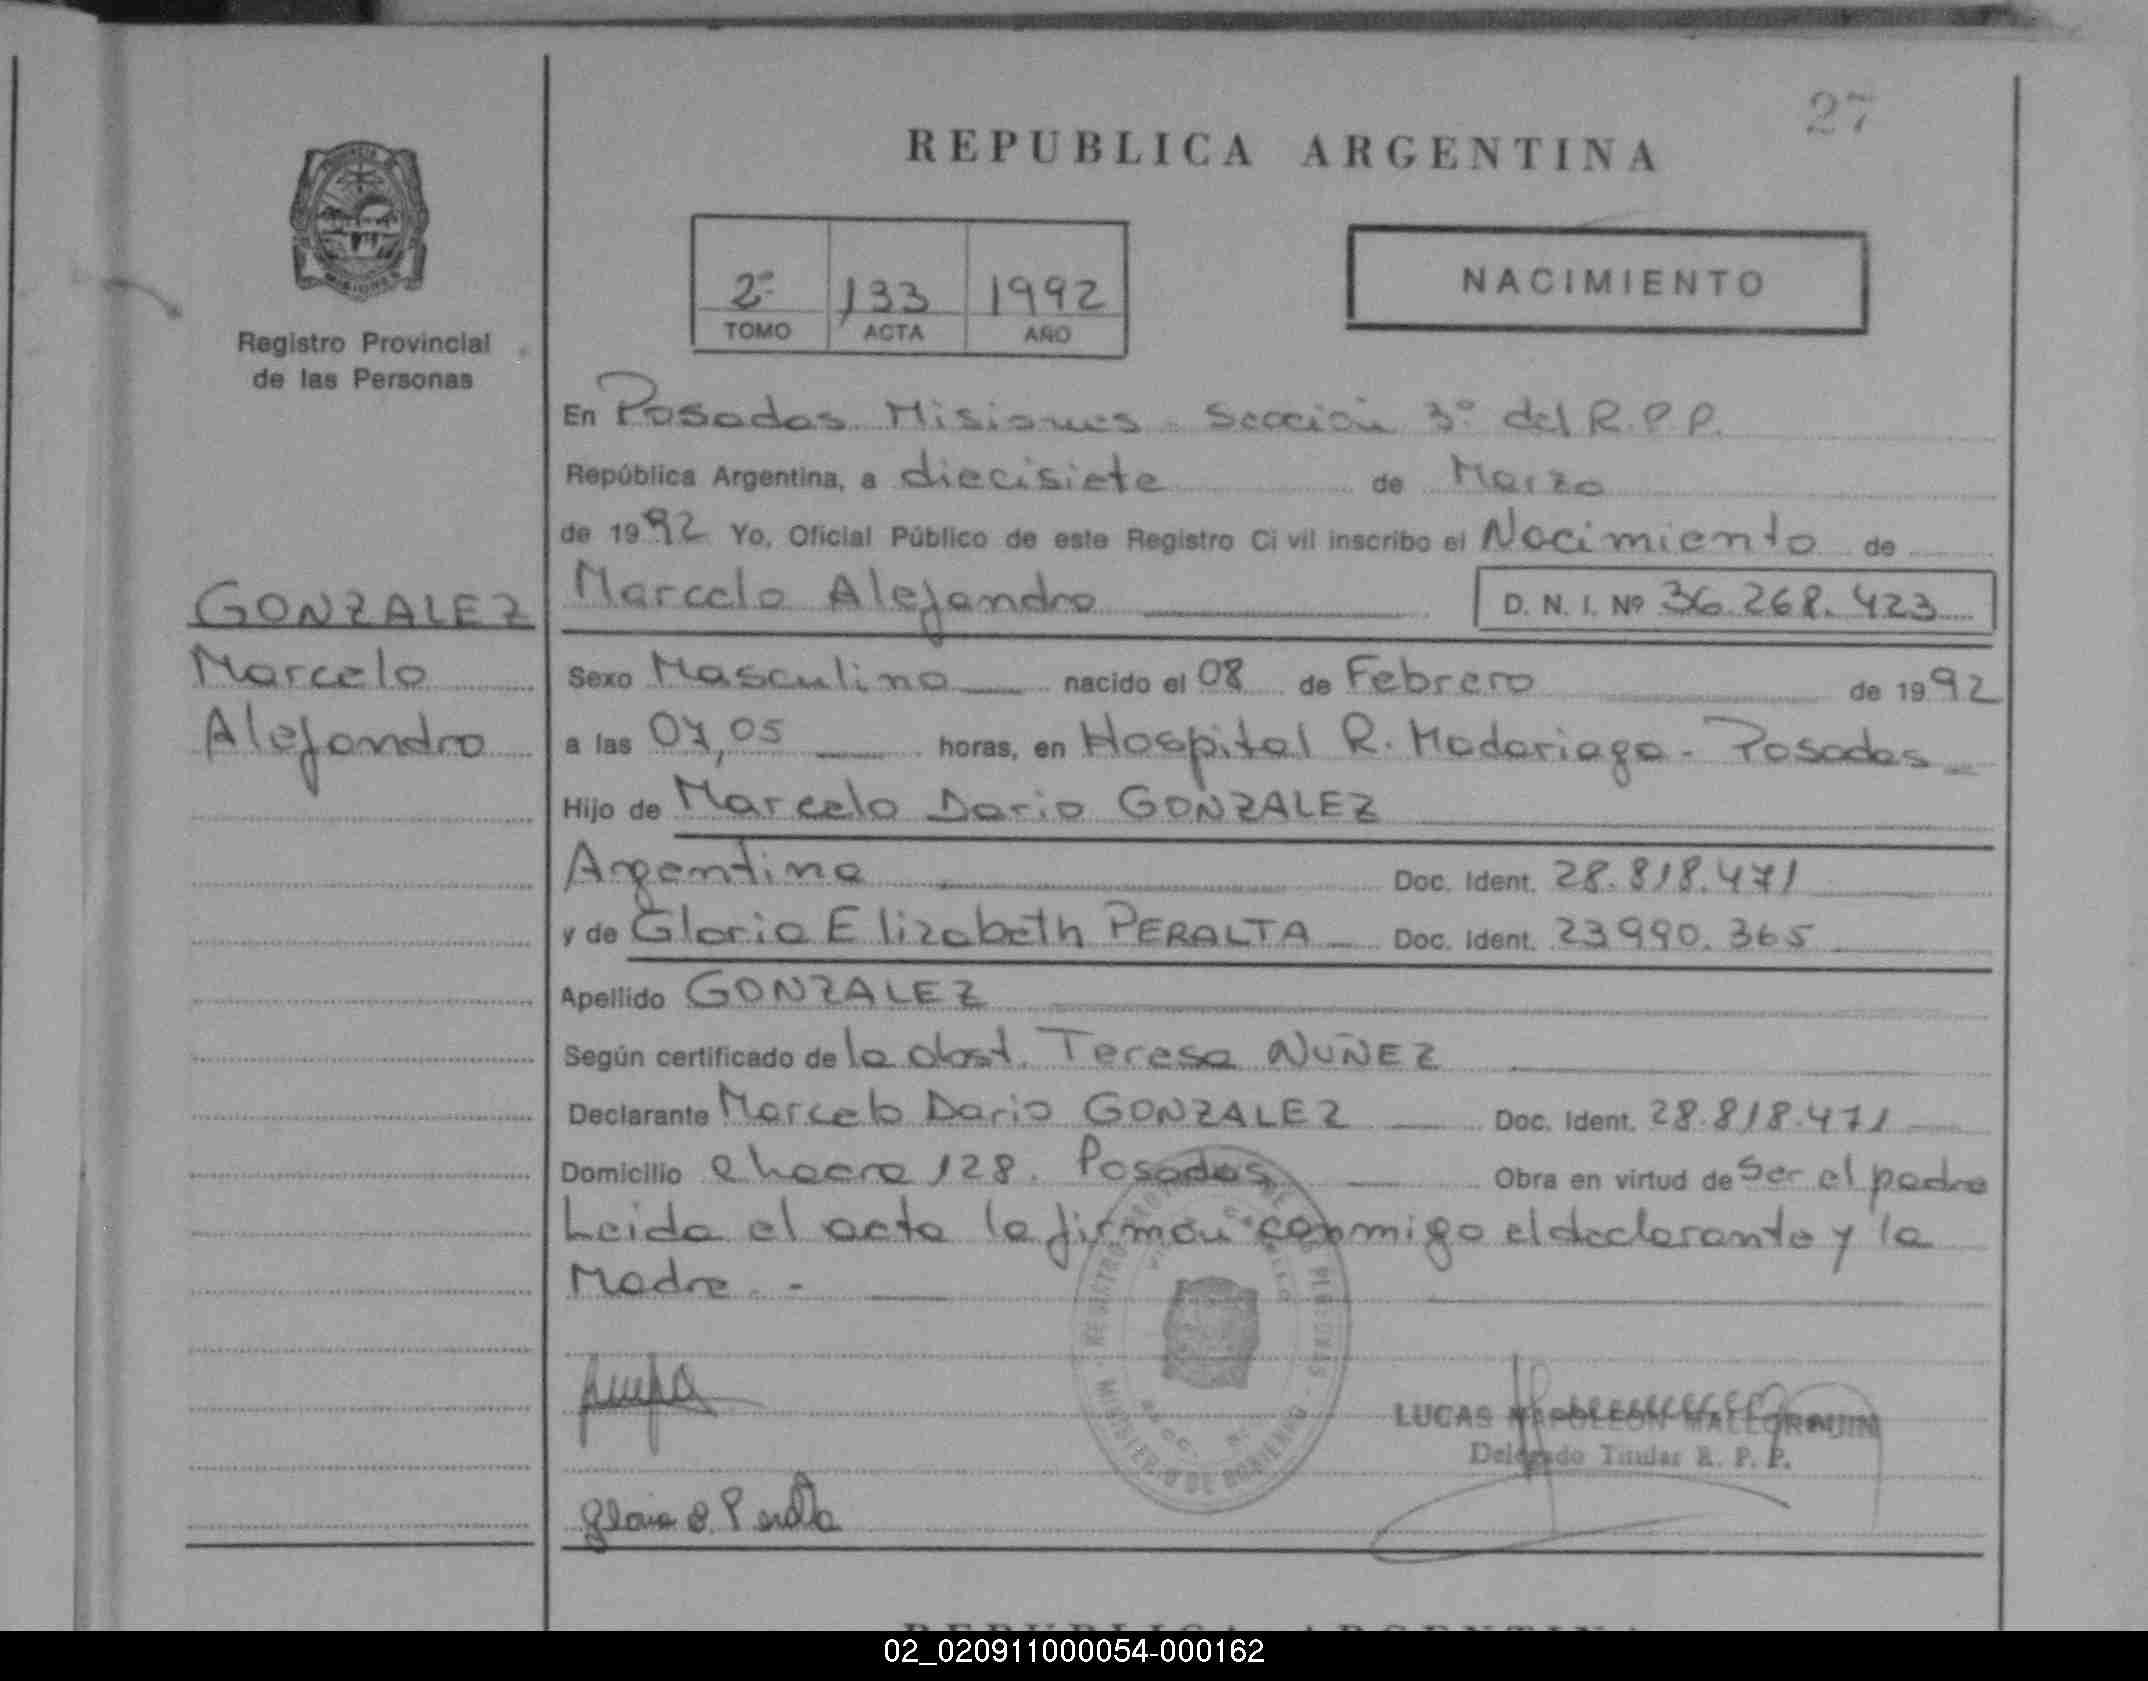 27
REPUBLICA ARGENTINA
2º 133 1992
TOMO ACTA AÑO
NACIMIENTO
Registro Provincial
de las Personas
En Posadas Misiones - Sección 3º del R.P.P.
República Argentina, a diecisiete de Marzo
de 1992 Yo, Oficial Público de este Registro Civil inscribo el Nacimiento de
GONZALEZ
Marcelo
Alejandro
Marcelo Alejandro D. N. I. Nº 36.268.423
Sexo Masculino nacido el 08 de Febrero de 1992
a las 07,05 horas, en Hospital R. Madariaga - Posadas
Hijo de Marcelo Dario GONZALEZ
Argentina Doc. Ident. 28.818.471
y de Gloria Elizabeth PERALTA Doc. Ident. 23990.365
Apellido GONZALEZ
Según certificado de la obst. Teresa NUÑEZ
Declarante Marcelo Dario GONZALEZ Doc. Ident. 28.818.471
Domicilio chacra 128. Posadas Obra en virtud de Ser el padre
Leida el acta la firman conmigo el declarante y la
Madre. -
LUCAS NAPOLEON MALLORQUIN
Delegado Titular R. P. P.
Gloria E. Peralta
MINISTERIO DE GOBIERNO
REPUBLICA ARGENTINA
02_020911000054-000162